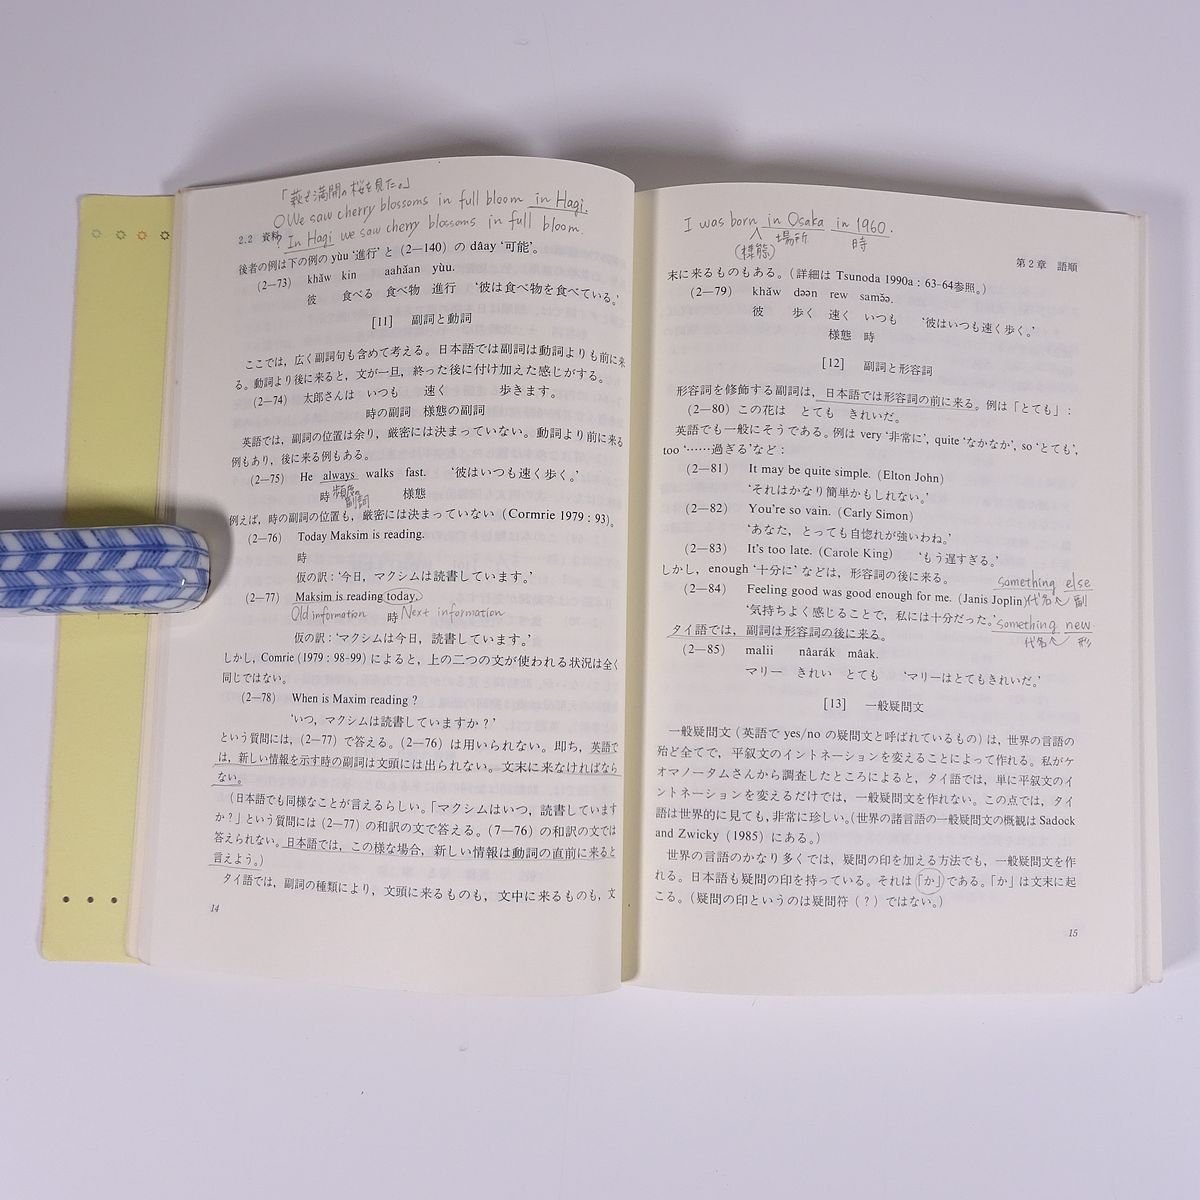 「萩で満開の桜を見た。」
○We saw cherry blossoms in full bloom in Hagi.
In Hagi we saw cherry blossoms in full bloom.
2.2 資料
後者の例は下の例の yùu ‘進行’ と (2—140) の dâay ‘可能’。
(2—73) khǎw kin aahǎan yùu.
彼 食べる 食べ物 進行 ‘彼は食べ物を食べている。’
[11] 副詞と動詞
ここでは，広く副詞句も含めて考える。日本語では副詞は動詞よりも前に来
る。動詞より後に来ると，文が一旦，終った後に付け加えた感じがする。
(2—74) 太郎さんは いつも 速く 歩きます。
時の副詞 様態の副詞
英語では，副詞の位置は余り，厳密には決まっていない。動詞より前に来る
例もあり，後に来る例もある。
(2—75) He always walks fast. ‘彼はいつも速く歩く。’
時 頻度の副詞 様態
例えば，時の副詞の位置も，厳密には決まっていない (Cormrie 1979 : 93)。
(2—76) Today Maksim is reading.
時
仮の訳：‘今日，マクシムは読書しています。’
(2—77) Maksim is reading today.
Old information 時 Next information
仮の訳：‘マクシムは今日，読書しています。’
しかし，Comrie (1979 : 98-99) によると，上の二つの文が使われる状況は全く
同じではない。
(2—78) When is Maxim reading ?
‘いつ，マクシムは読書していますか？’
という質問には，(2—77) で答える。(2—76) は用いられない。即ち，英語で
は，新しい情報を示す時の副詞は文頭には出られない。文末に来なければなら
ない。
（日本語でも同様なことが言えるらしい。「マクシムはいつ，読書しています
か？」という質問には (2—77) の和訳の文で答える。(7—76) の和訳の文では
答えられない。日本語では，この様な場合，新しい情報は動詞の直前に来ると
言えよう。）
タイ語では，副詞の種類により，文頭に来るものも，文中に来るものも，文
14
I was born in Osaka in 1960.
(様態) 場所 時
第2章 語順
末に来るものもある。（詳細は Tsunoda 1990a : 63-64参照。）
(2—79) khǎw dəən rew samə̌ə.
彼 歩く 速く いつも ‘彼はいつも速く歩く。’
様態 時
[12] 副詞と形容詞
形容詞を修飾する副詞は，日本語では形容詞の前に来る。例は「とても」：
(2—80) この花は とても きれいだ。
英語でも一般にそうである。例は very ‘非常に’, quite ‘なかなか’, so ‘とても’,
too ‘……過ぎる’ など：
(2—81) It may be quite simple. (Elton John)
‘それはかなり簡単かもしれない。’
(2—82) You're so vain. (Carly Simon)
‘あなた，とっても自惚れが強いわね。’
(2—83) It's too late. (Carole King) ‘もう遅すぎる。’
しかし，enough ‘十分に’ などは，形容詞の後に来る。
something else
(2—84) Feeling good was good enough for me. (Janis Joplin)
代名 副
‘気持ちよく感じることで，私には十分だった。’
something new.
代名 形
タイ語では，副詞は形容詞の後に来る。
(2—85) malii nâarák mâak.
マリー きれい とても ‘マリーはとてもきれいだ。’
[13] 一般疑問文
一般疑問文（英語で yes/no の疑問文と呼ばれているもの）は，世界の言語の
殆ど全てで，平叙文のイントネーションを変えることによって作れる。私がケ
オマノータムさんから調査したところによると，タイ語では，単に平叙文のイ
ントネーションを変えるだけでは，一般疑問文を作れない。この点では，タイ
語は世界的に見ても，非常に珍しい。（世界の諸言語の一般疑問文の概観は Sadock
and Zwicky (1985) にある。）
世界の言語のかなり多くでは，疑問の印を加える方法でも，一般疑問文を作
れる。日本語も疑問の印を持っている。それは「か」である。「か」は文末に起
こる。（疑問の印というのは疑問符（？）ではない。）
15